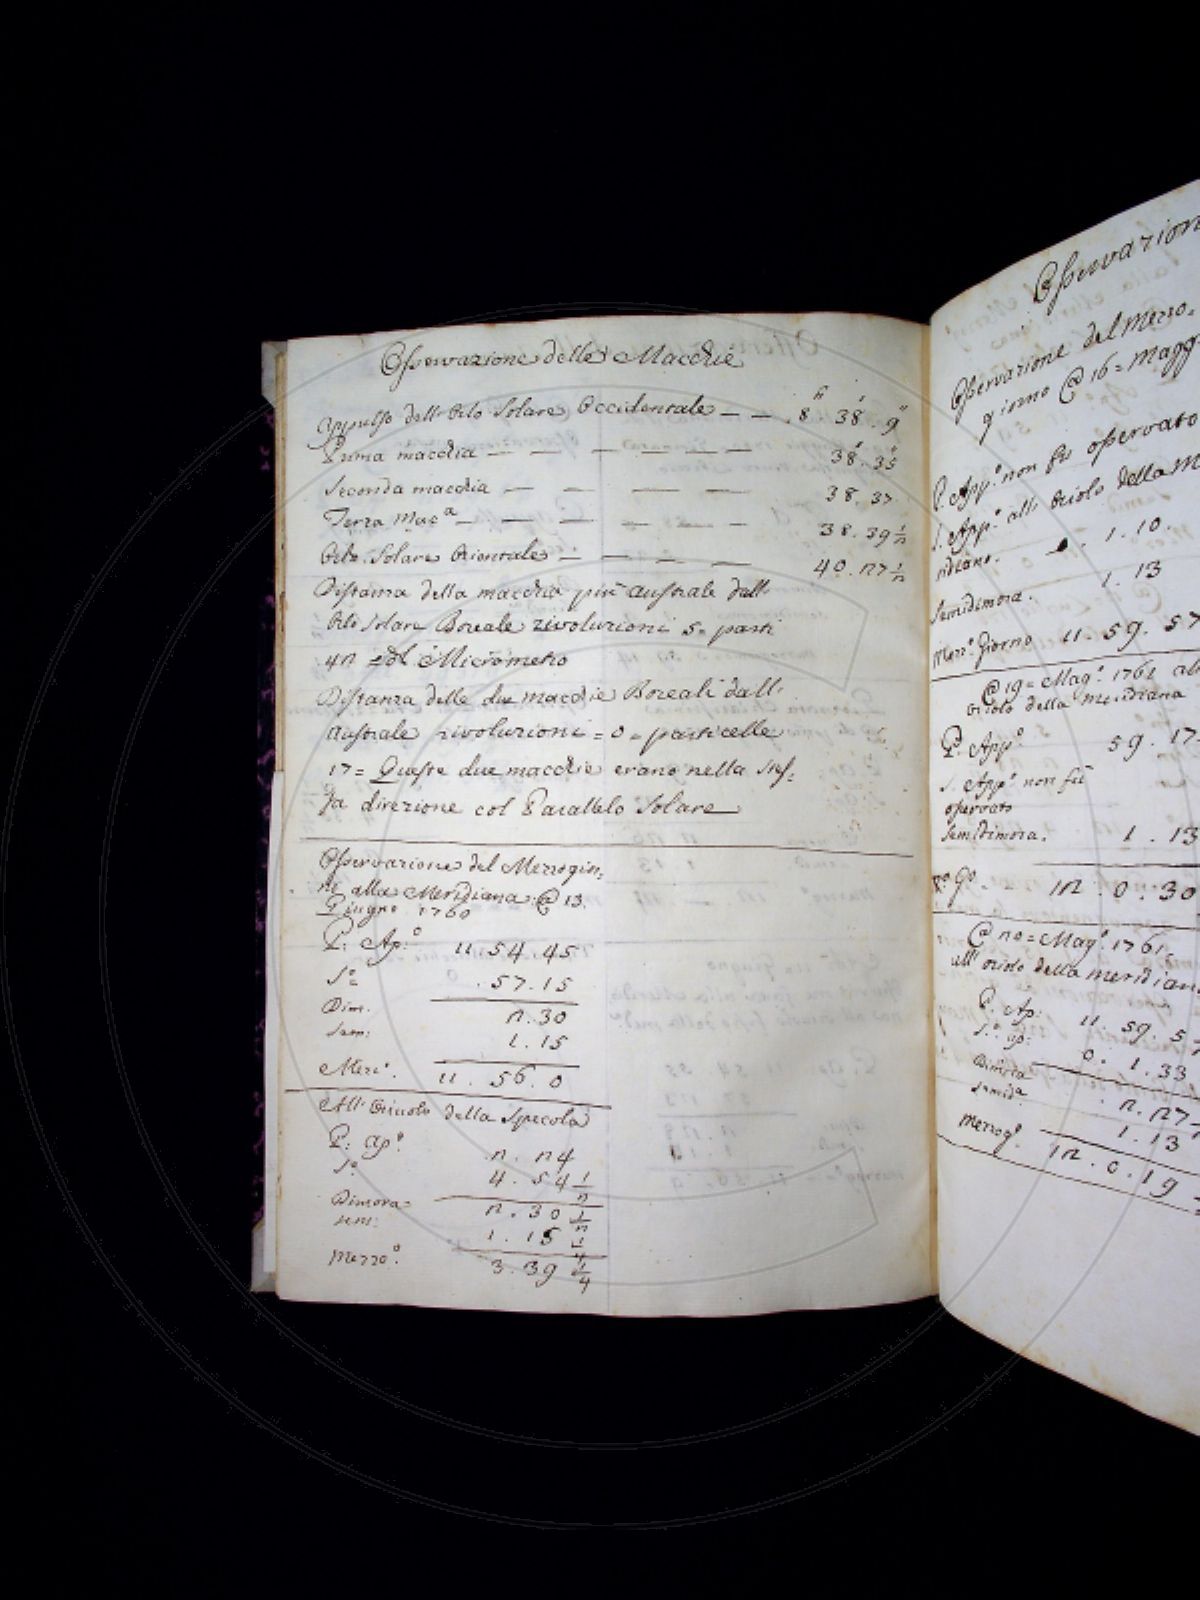 Osservazione delle Macchie
Appulso dell'Orlo Solare Occidentale — — . 8h 38' . 9"
Prima macchia — — — — — 38' . 35"
Seconda macchia — — — — 38 . 37
Terza Macª — — — — — 38 . 39 1/2
Orlo Solare Orientale — — — — 40 . 27 1/2
Distanza della macchia più australe dall'
Orlo Solare Boreale rivoluzioni 5 = parti
42 col Micrometro
Distanza delle due macchie Boreali dall'
australe rivoluzioni = 0 = particelle
17 = Queste due macchie erano nella stes=
sa direzione col Parallelo Solare
Osservazione del Mezzogior=
no alla Meridiana @ 13
Giugno 1760
P: Ap:º 11 . 54 . 45
Sº . 57 . 15
Dim. 2 . 30
Sem: 1 . 15
Mezzº. 11 . 56 . 0
All'Oriuolo della Specola
P: apº 2 . 24
Sº 4 . 54 1/2
Dimora= 2 . 30 1/2
sem: 1 . 15 1/4
Mezzoº. 3 . 39 1/4
Osservazion
Osservazione del Mezzo=
giorno @ 16 = Magg
P. Appº non fu osservato
S. Appº all'Oriolo della M
ridiano. 1 . 10 .
Semidimora. 1 . 13
Mezzº Giorno 11 . 59 . 57
@ 19 = Magº 1761 all
oriolo della Meridiana
P. Appº 59 . 17
S. Appº non fu
osservato
Semidimora. 1 . 13
Gº 12 . 0 . 30
@ 20 = Magº 1761
all'oriolo della meridiana
P. Ap: 11 . 59 . 5
S.º ap: 0 . 1 . 33
Dimora 2 . 27
semidª 1 . 13
mezzogº. 12 . 0 . 19